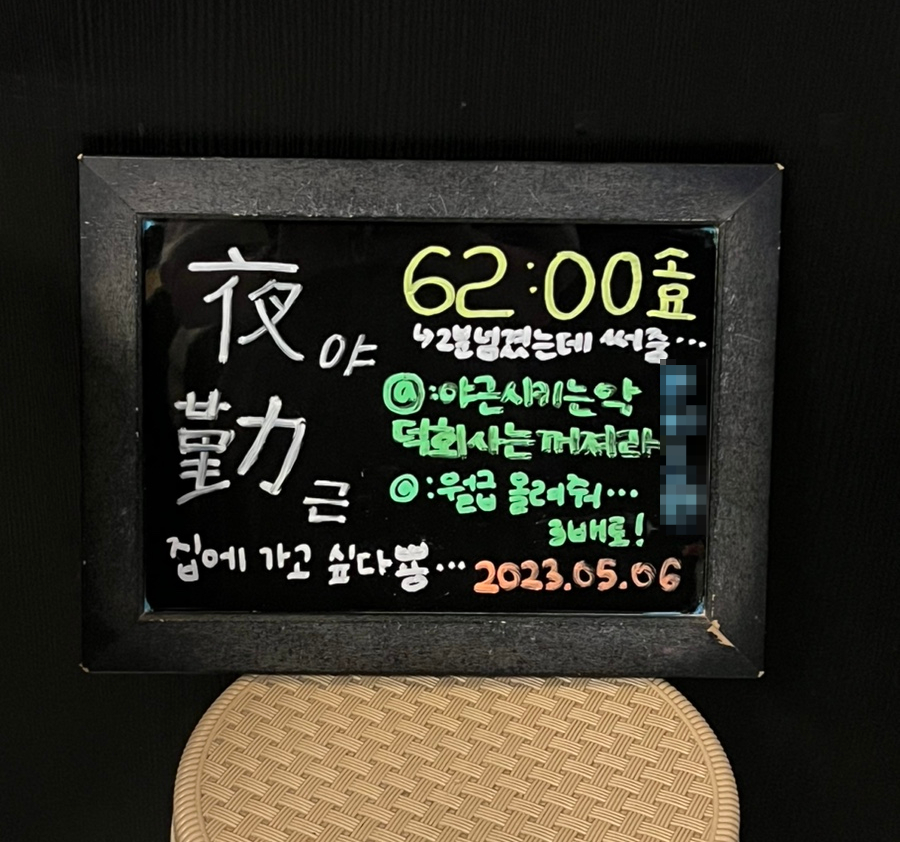 夜 야
勤 근
집에 가고 싶다뿅...
62:00 숌
↳2분넘겼는데 써줌...
@:야근시키는악
덕회사는꺼져라
@:월급 올려줘...
3배로!
2023.05.06